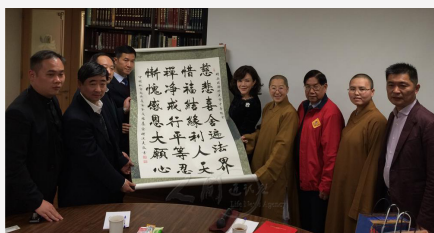 慈悲喜舍遍法界
惜福結緣利人天
禪淨戒行平等忍
慚愧感恩大願心
人間通訊社